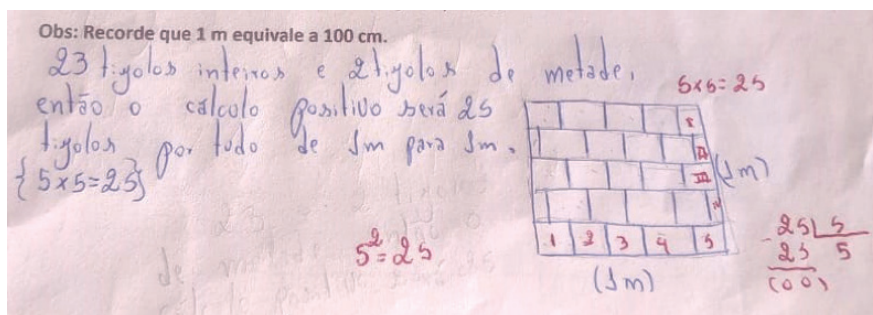 Obs: Recorde que 1 m equivale a 100 cm.
23 tigolos inteiros e 2 tigolos de metade,
então o cálculo positivo será 25
tigolos por tudo de 1m para 1m.
{5x5=25}
5x5=25
I
II
III
IV
1 2 3 4 5
(1m)
(1m)
5²=25
25 5
- 25 5
(00)